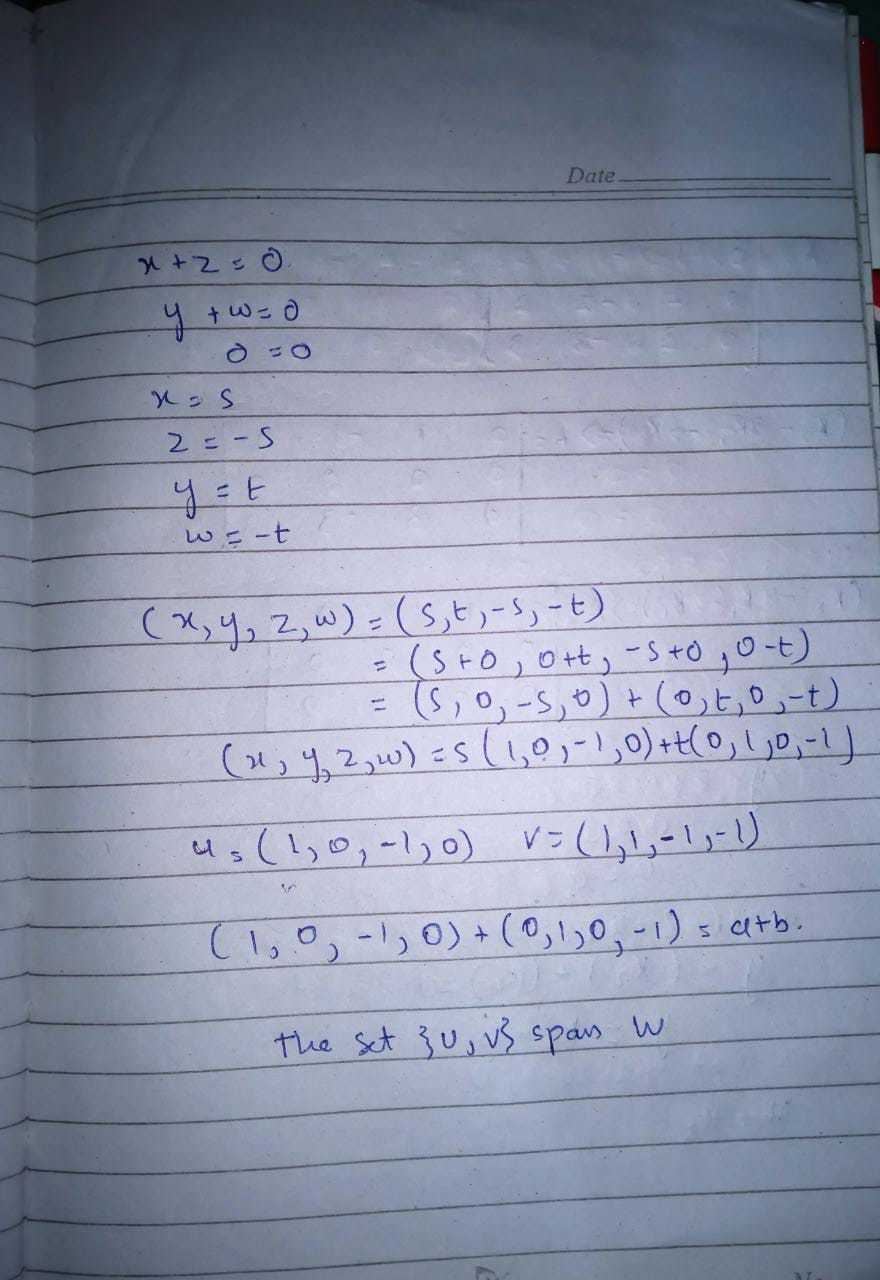 Date
x + z = 0
y + w = 0
0 = 0
x = s
z = -s
y = t
w = -t
(x, y, z, w) = (s, t, -s, -t)
= (s+0, 0+t, -s+0, 0-t)
= (s, 0, -s, 0) + (0, t, 0, -t)
(x, y, z, w) = s(1, 0, -1, 0) + t(0, 1, 0, -1)
u = (1, 0, -1, 0) v = (1, 1, -1, -1)
(1, 0, -1, 0) + (0, 1, 0, -1) = a+b.
the set {u, v} span W